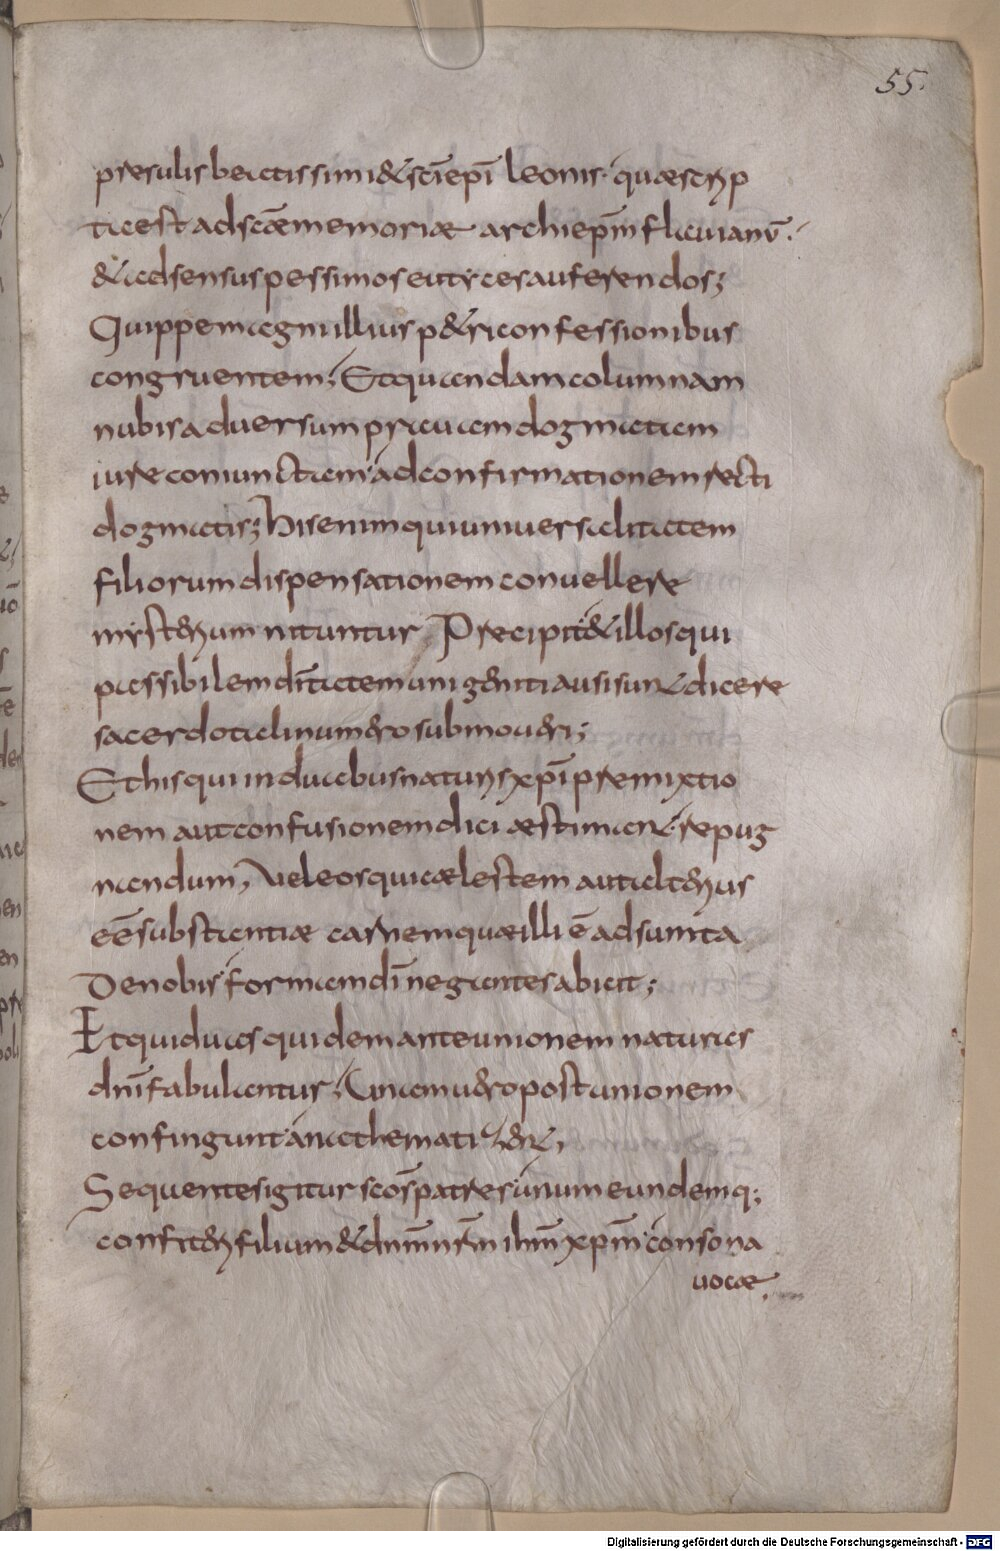 55.
presulis beatissimi & scī epī leonis. quae scrip
ta est ad scāe memoriae archiepm̄ flauianū.
& ad sensus pessimos eutyces auferendos;
Quippe magni illius p&ri confessionibus
congruentem; Et quandam columnam
nubis aduersum prauam dogmatiem
iure coniunctiem ad confirmationem recti
dogmatis; His enim qui uniuersalitatem
filiorum dispensationem conuellere
mysterium nituntur, Precipit & illos qui
passibilem dītatem unigeniti ausi sunt dicere
sacerdotali numero submoueri;
Et his qui in duabus naturis xp̄i premixtio
nem aut confusionem dici aestimant. repug
nandum, uel eos qui caelestem aut alterius
eē substantiae carnem quae illi ē adsumta
De nobis formam dī negantes abicit;
Et qui duas quidem ante unionem naturas
dnī fabulantur; Unam uero post unionem
confingunt anathemati
Sequentes igitur scōs patres unum eundemq;
confiteri filium & dnm̄ nr̄m ihm̄ xpm̄ consona
uocae,
Digitalisierung gefördert durch die Deutsche Forschungsgemeinschaft - DFG